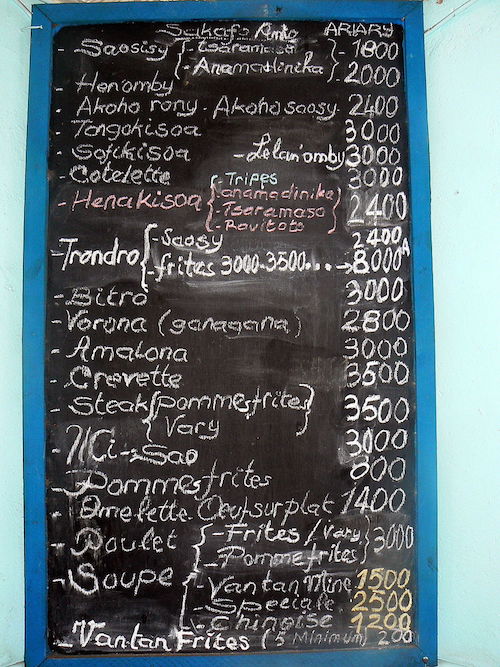 Sakafo Anio ARIARY
- Saosisy { - Tsaramaso - 1800
- Anamadinika - 2000
- Hen'omby
- Akoho rony - Akoho saosy - 2400
- Tongokisoa 3000
- Sofikisoa - Lelan'omby 3000
- Cotelette 3000
- Tripes
- Henakisoa { anamadinika
- Tsaramaso } 2400
- Ravitoto
- Trondro { - Saosy 2400
- frites 3000-3500....→8000A
- Bitro 3000
- Vorona (ganagana) 2800
- Amalona 3000
- Crevette 3500
- Steak { pommes frites } 3500
Vary
- Mi-Sao 3000
- Pommes frites 800
- Omelette Oeuf sur plat 1400
- Poulet { - Frites / Vary } 3000
- Pomme frites
- Soupe { - Vantan Mine 1500
- Speciale 2500
- Chinoise 1200
- Vantan Frites (5 Minimum) 200